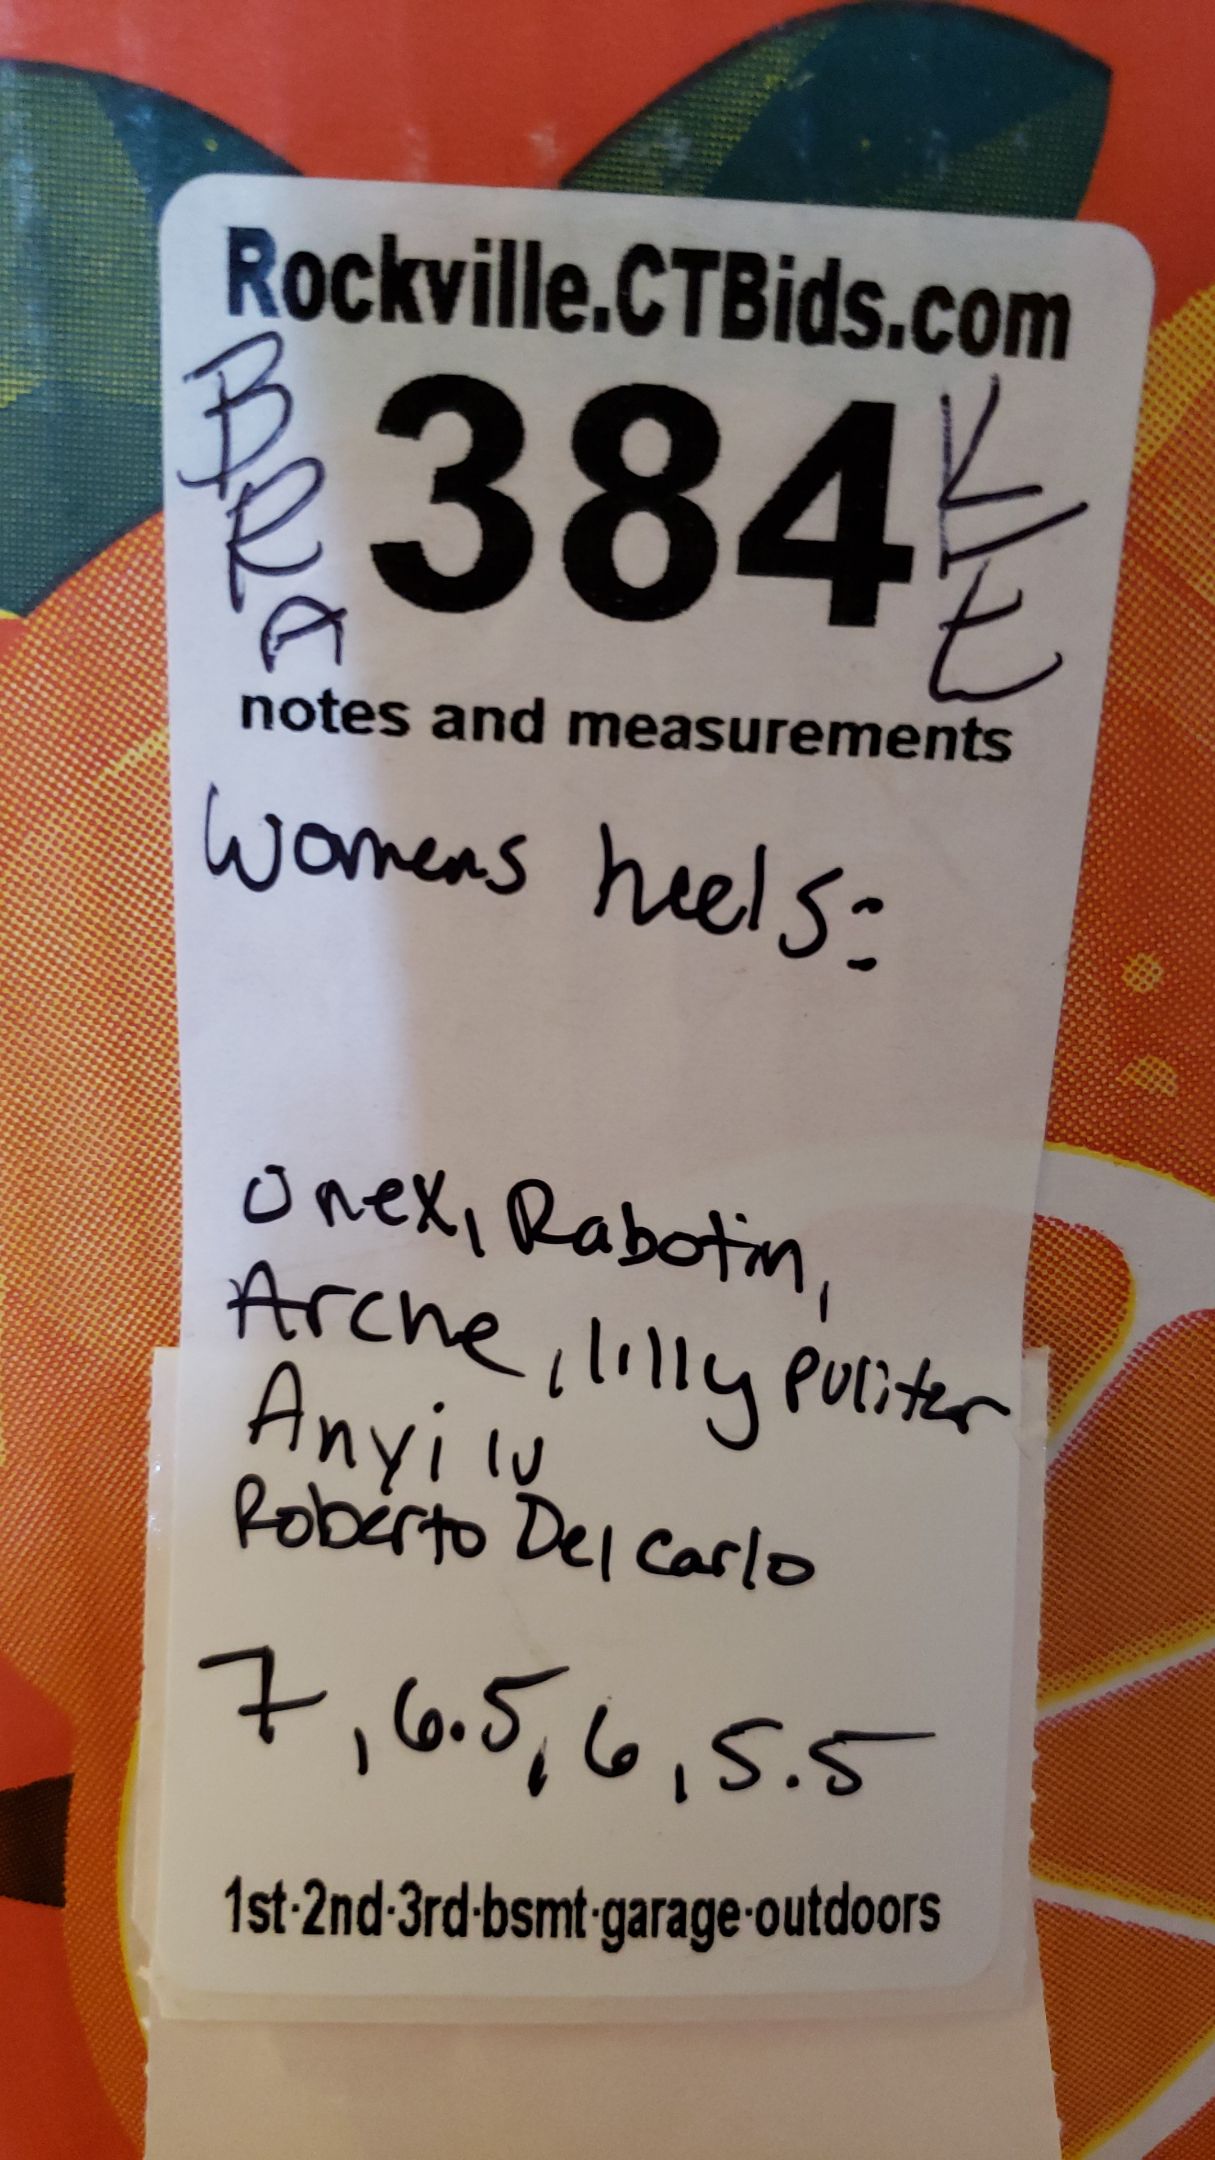 Rockville.CTBids.com
BRA
384
notes and measurements
Womens heels:
Onex, Rabotin,
Arche, lilly Puliter
Anyi lu
Roberto Del Carlo
7, 6.5, 6, 5.5
1st·2nd·3rd·bsmt·garage·outdoors